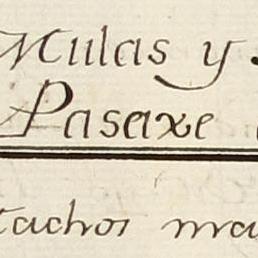 Mulas y
Pasaxe
tachos